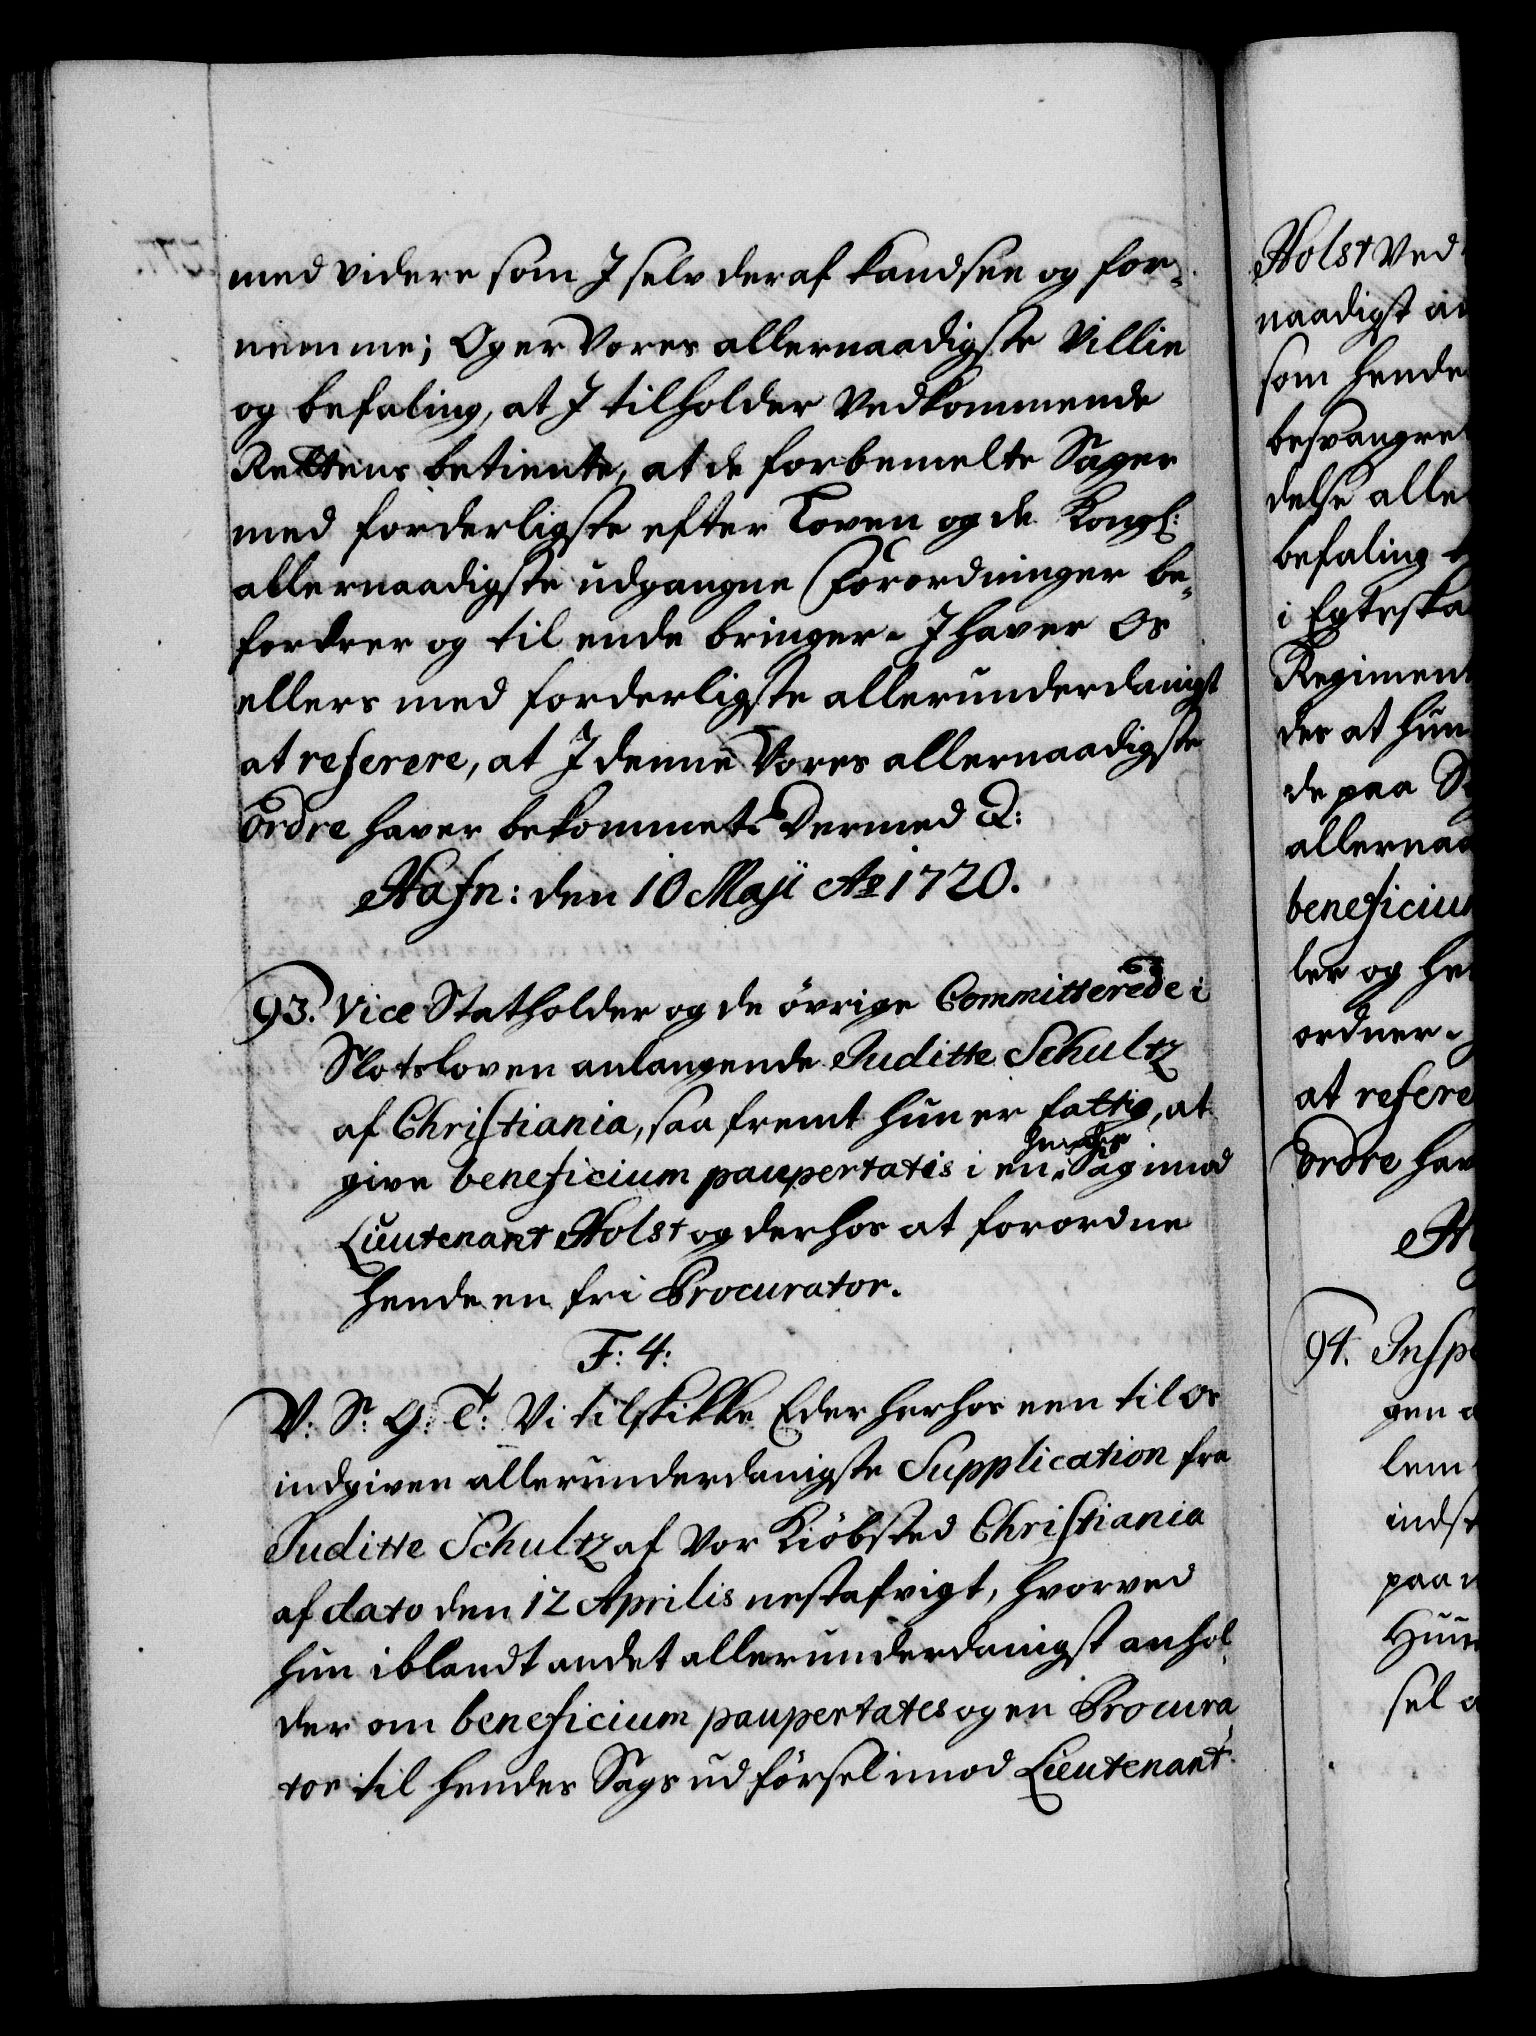 med videre som I selv deraf kand see og for-
nemme; Og er Vores allernaadigste Villie
og befaling, at I tilholder Vedkommende
Rettens betiente, at de forbemelte Sager
med forderligste efter Loven og de Kongl:
allernaadigste udgangne Forordninger be-
fordrer og til ende bringer. I haver Os
ellers med forderligste allerunderdanigst
at referere, at I denne Vores allernaadigste
ordre haver bekommet. Dermed &:
Hafn: den 10 Maji Ao 1720.
93. Vice Statholder og de övrige Committerede i
Slotsloven anlangende Juditte Schultz
af Christiania, saafremt hun er fattig, at
give beneficium paupertatis i en hendes Sag imod
Lieutenant Holst og derhos at forordne
hende en fri Procurator.
F: 4:
V: S: G: T: Vi tilskikke Eder herhos een til Os
indgiven allerunderdanigste Supplication fra
Juditte Schultz af Vor Kiöbsted Christiania
af dato den 12 Aprilis nestafvigt, hvorved
hun iblandt andet allerunderdanigst anhol-
der om beneficium paupertates og en Procura-
tor til hendes Sags udförsel imod Lieutenant
Holst Ved
naadigst an
som hende
besvangre
delse alle
befaling
i Egteska
Regiment
des at hun
de paa S
allernaa
beneficium
ler og he
ordner.
at refere
ordre hav
H
94. Insp
gen a
lem
indst
paa
Huu
sel a